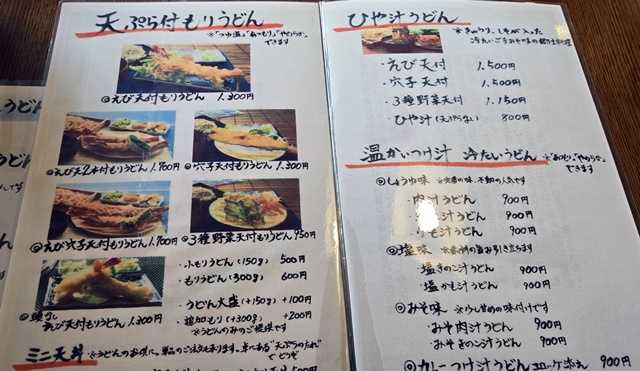 天ぷら付もりうどん
できます
◎えび天付もりうどん 1,300円
◎えび天2本付もりうどん 1,900円
◎穴子天付もりうどん 1,300円
◎えび穴子天付もりうどん 1,900円
◎3種野菜天付もりうどん 950円
えび天付もりうどん 1,300円
・小もりうどん(150g) 500円
・もりうどん(300g) 600円
・うどん大盛(+150g) +100円
・追加もり(+300g) +200円
※うどんのみのご提供です
ミニ天丼
ひや汁うどん
※きゅうり、しそが入った
冷たいごまみそ味の郷土料理
・えび天付 1,500円
・穴子天付 1,500円
・3種野菜天付 1,150円
・ひや汁(天ぷらなし) 800円
温かいつけ汁 冷たいうどん
できます
◎しょうゆ味 ※定番の味、不動の人気です
・肉汁うどん 900円
汁うどん 900円
汁うどん 900円
◎塩味
・塩きのこ汁うどん 900円
・塩かも汁うどん 900円
◎みそ味 ※少し甘めの味付けです
・みそ肉汁うどん 900円
・みそきのこ汁うどん 900円
◎カレーつけ汁うどん 900円